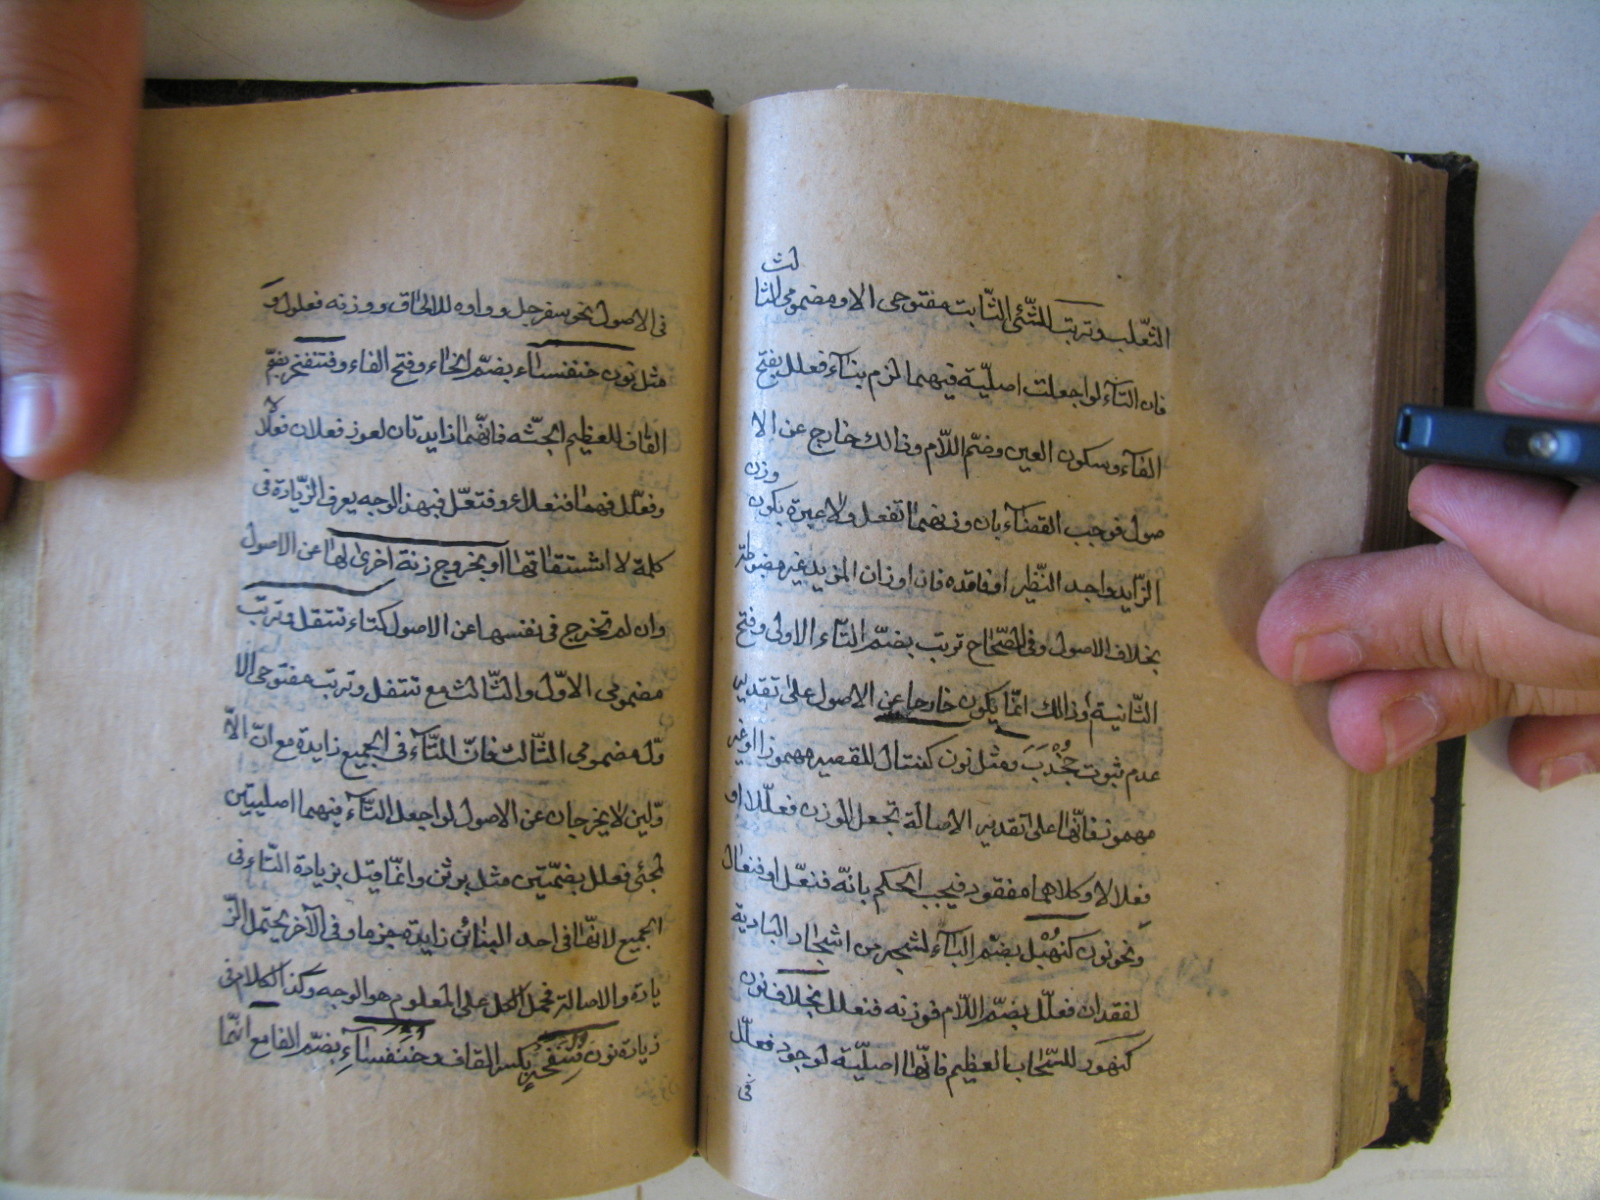 لث
الثعلب وترتب للشّئ الثّابت مفتوحى الاو مضمومى الثا
فان التآء لو اجعلت اصليّة فيهما لزم بنآء فعلل بفتح
الفآء وسكون العين وضمّ اللّام وذالك خارج عن الا
وزن
صول فوجب القضآء بان وزنهما تفعل ولا عبرة بكون
الزّايد واحد النّظير او فاقده فان اوزان المزيد غير مضبوطة
بخلاف الاصول وفى الصّحاح ترتب بضمّ التّاء الاولى وفتح
الثّانية وذالك انمّا يكون خارجا عن الاصول على تقدير
عدم ثبوت جُخْدَبَ ومثل نون كنتال للقصير مهموزا او غير
مهموز فانّها على تقدير الاصالة تجعل الوزن فعلّلا او
فعلالا وكلاهما مفقود فيجب الحكم بانّه فنعلّ او فنعال
ونحو نون كنهْبُل بضمّ البآء لشجر من اشجار البادية
لفقدان فعلّل بضمّ اللّام فوزنه فنعلل بخلاف نون
كنهور للسّحاب العظيم فانّها اصليّة لوجود فعلّل
فى
فى الاصول نحو سفرجل وواوه للالحاق ووزنه فعلول و
مثل نون خنفساء بضمّ الخاء وفتح الفاء وقنفخر بضمّ
القاف للعظيم الجثّه فانّهما زايدتان لعوز فعلان فعلا
وفعلّل فهما فنعلاء وفنعلّ فبهذ الوجه يعرف الزّيادة فى
كلمة لا اشتقاق لها او بخروج زنة اخرى لها عن الاصول
وان لم تخرج فى نفسها عن الاصول كتاء تتفل وترتب
مضمومى الاوّل والثّالث مع تتفل وترتب مفتوحى الا
وّل مضمومى الثّالث فانّ التّآء فى الجميع زايدة مع انّ الا
وّلين لا يخرجان عن الاصول لو اجعل التّآء فيهما اصليتين
لمجئ فعلل بضمّتين مثل برثن وانمّا قيل بزيادة التاء فى
الجميع لانهّا فى احد البنائن زايدة جزما وفى الآخر يحتمل الزّ
يادة والاصالة فحمل الكل على المعلوم هو الوجه وكذ الكلام فى
زيادة نون قِنْفَخْرٍ بكسر القاف وخُنْفُساءِ بضمّ الفا مع انهّا